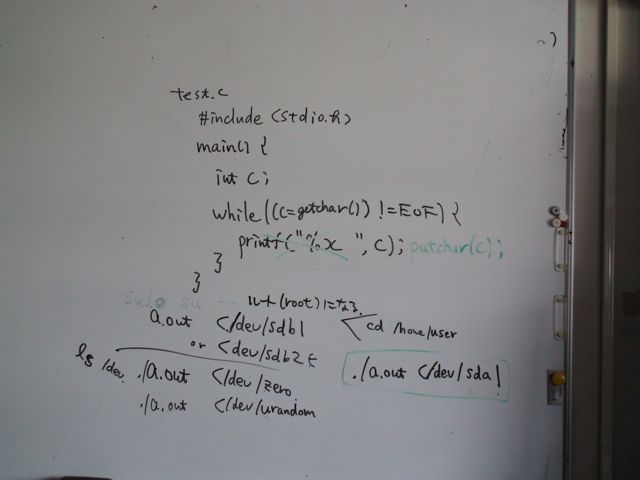 test.c
#include <stdio.h>
main() {
int c;
while((c=getchar()) != EOF) {
printf("%x ", c); putchar(c);
}
}
sudo su ルート(root)になる.
a.out </dev/sdb1
cd /home/user
or </dev/sdb2
ls /dev. ./a.out </dev/zero
./a.out </dev/sda1
./a.out </dev/urandom